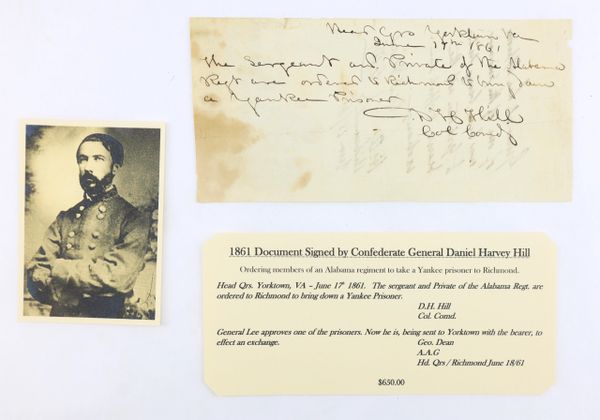 Head Qrs Yorktown Va
June 17th 1861
The Sergeant and Private of the Alabama
Regt are ordered to Richmond to bring down
a Yankee Prisoner
D H Hill
Col Comdg
1861 Document Signed by Confederate General Daniel Harvey Hill
Ordering members of an Alabama regiment to take a Yankee prisoner to Richmond.
Head Qrs. Yorktown, VA – June 17t 1861. The sergeant and Private of the Alabama Regt. are
ordered to Richmond to bring down a Yankee Prisoner.
D.H. Hill
Col. Comd.
General Lee approves one of the prisoners. Now he is, being sent to Yorktown with the bearer, to
effect an exchange.
Geo. Dean
A.A.G
Hd. Qrs / Richmond June 18/61
$650.00